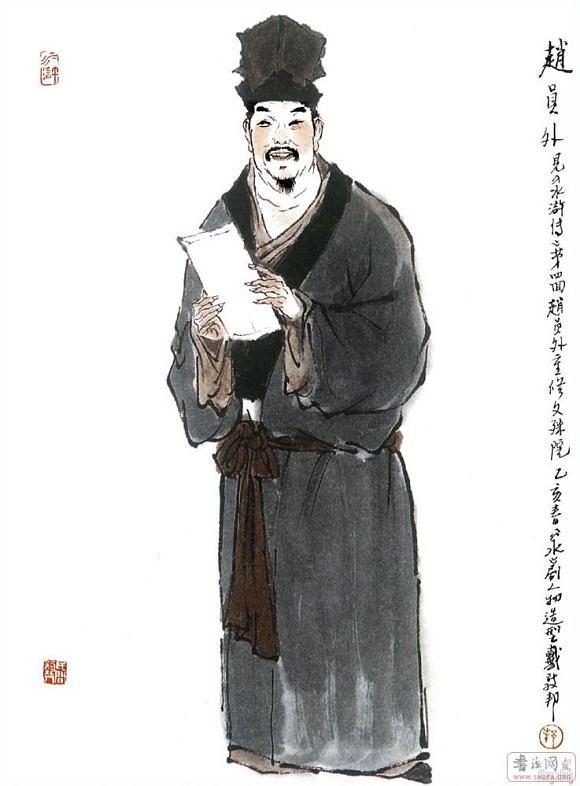 趙員外見水滸傳第四回趙員外重修文殊院乙亥春水劇人物造型戴敦邦
水滸
邦
WWW.SHUFA.ORG